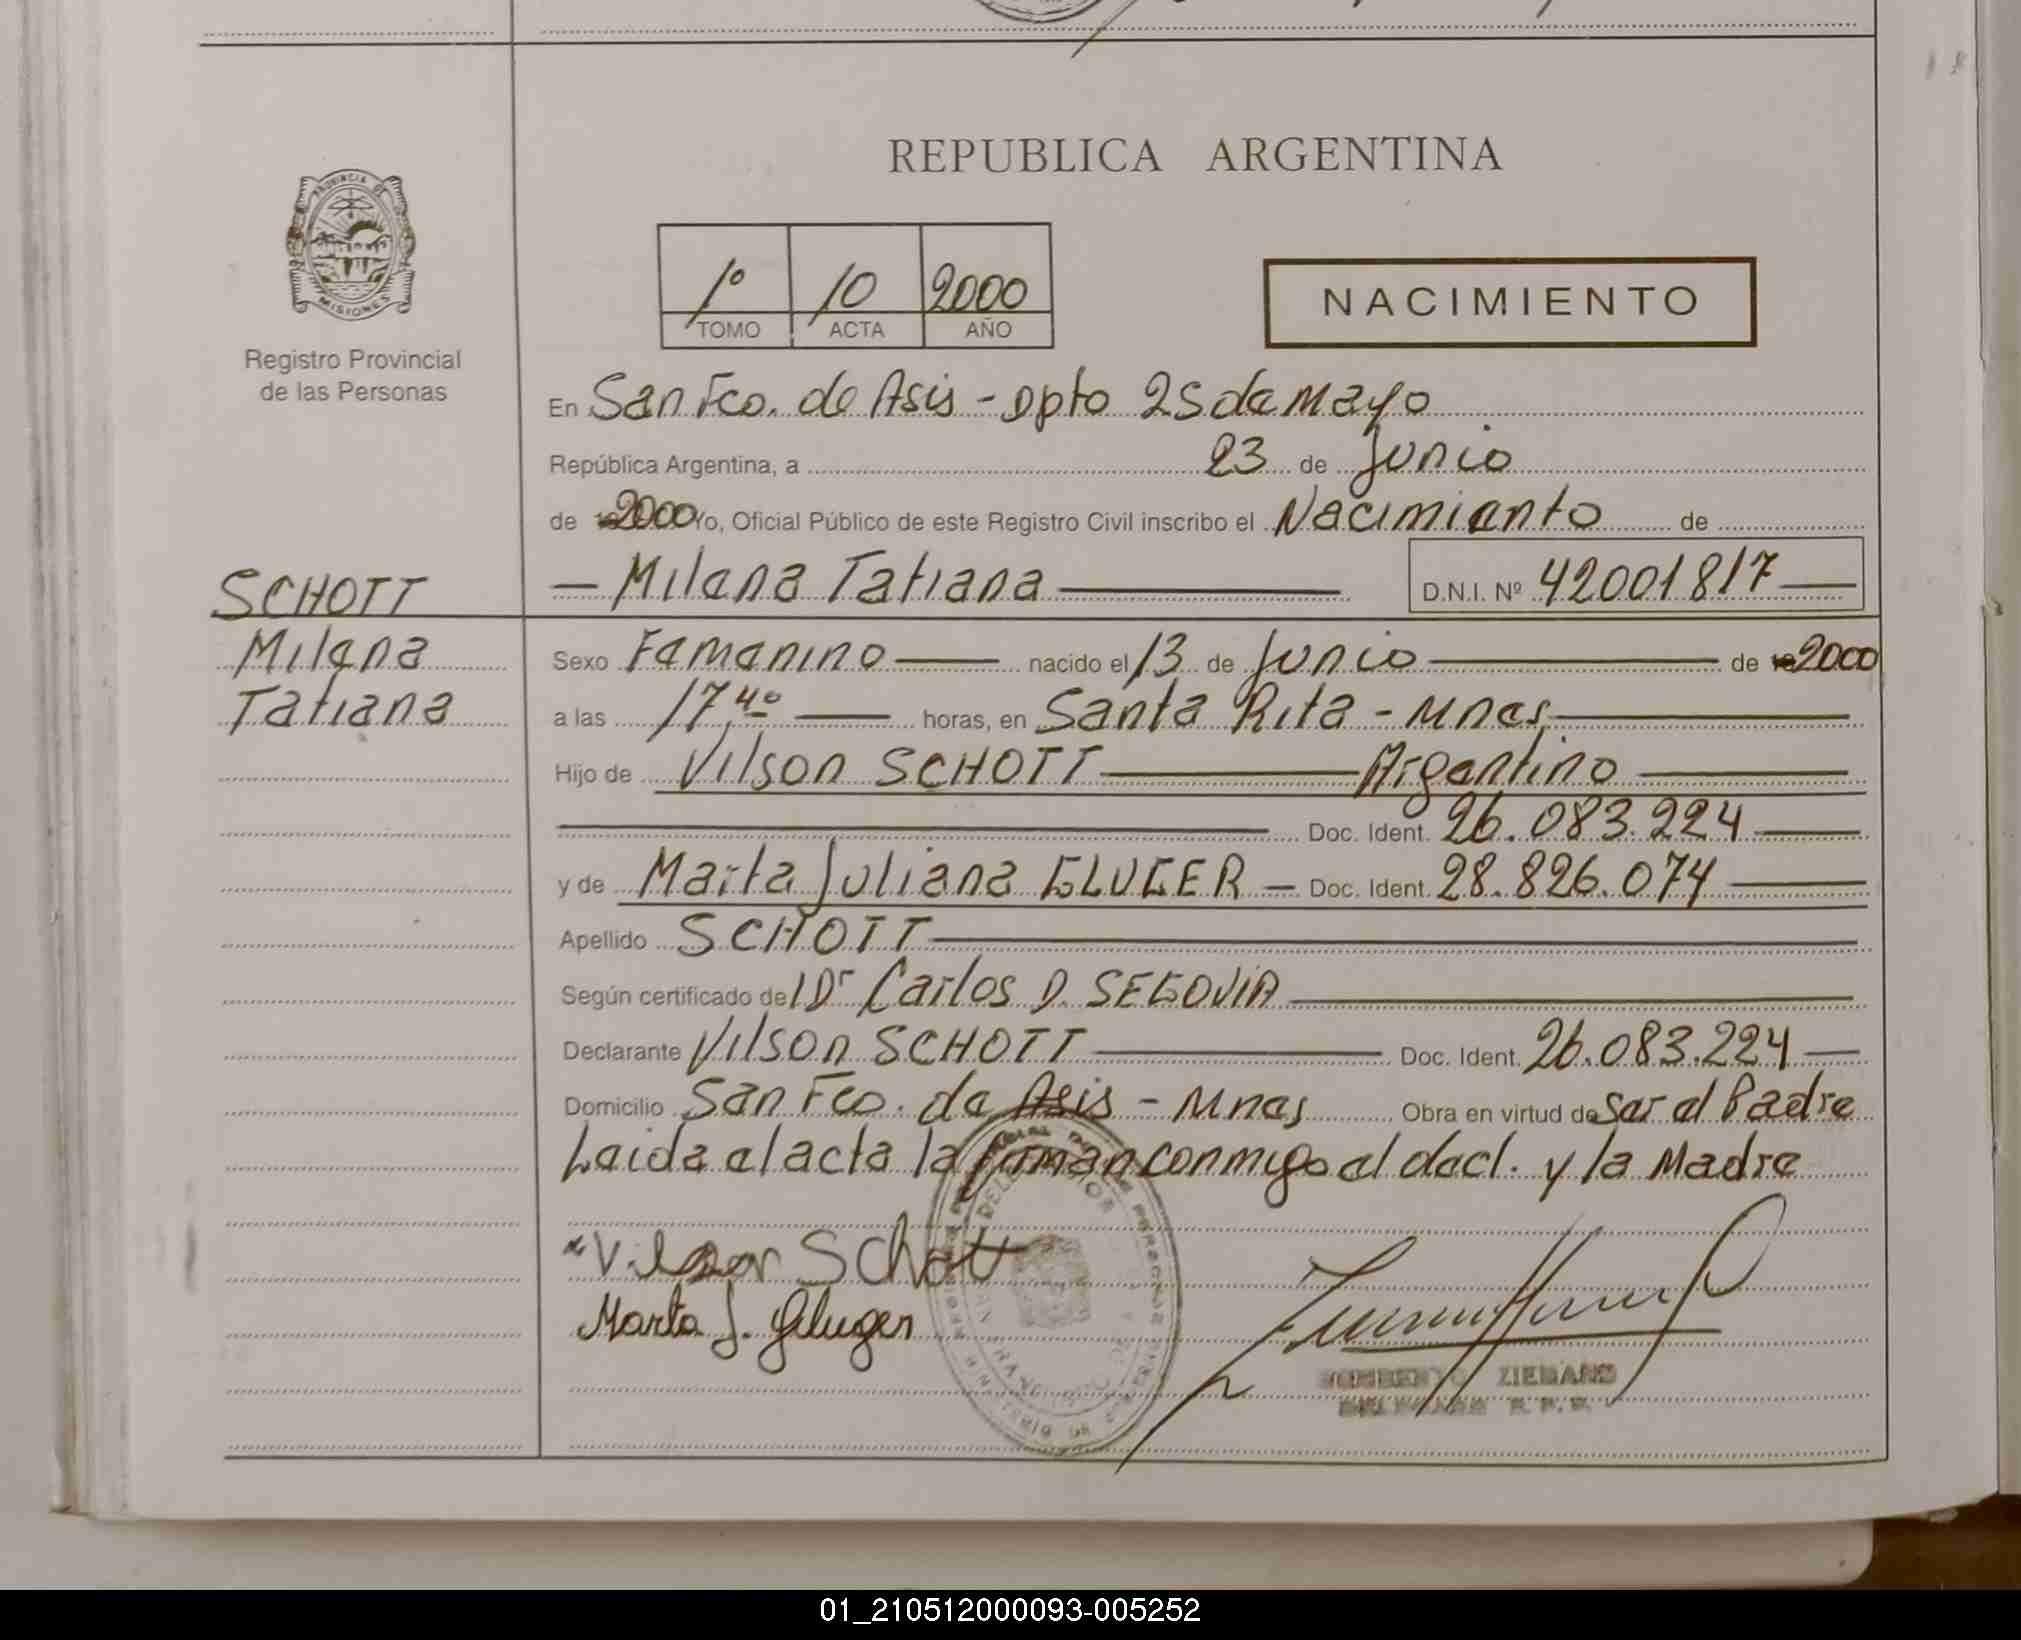 REPUBLICA ARGENTINA
PROVINCIA DE
MISIONES
Registro Provincial
de las Personas
1º 10 2000
TOMO ACTA AÑO
NACIMIENTO
En San Fco. de Asis - Dpto 25 de Mayo
República Argentina, a 23 de Junio
de 2000 Yo, Oficial Público de este Registro Civil inscribo el Nacimiento de
— Milena Tatiana — D.N.I. Nº 42001817 —
SCHOTT
Milena
Tatiana
Sexo Femenino — nacido el 13 de Junio — de 2000
a las 17,40 — horas, en Santa Rita - Mnes, —
Hijo de Vilson SCHOTT — Argentino —
— Doc. Ident. 26.083.224 —
y de Marta Juliana GLUGER — Doc. Ident. 28.826.074 —
Apellido SCHOTT —
Según certificado del Dr Carlos D. SEGOVIA —
Declarante Vilson SCHOTT — Doc. Ident. 26.083.224 —
Domicilio San Fco. de Asis - Mnes Obra en virtud de ser el Padre
Leida el acta la firman conmigo el decl. y la Madre
Vilson Schott
Marta J. Gluger
ZIEMANN
01_210512000093-005252